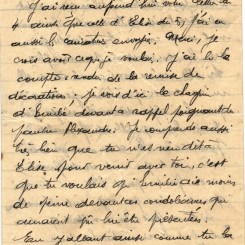 J'ai reçu aujourd'hui votre lettre du
4 ainsi que celle d'Elise du 5, j'ai eu
aussi le envoyé. Merci, je
crois avoir ce que je voulais. J'ai lu le
compte-rendu de la remise de
décorations; je vois d'ici le chagrin
d'Emilie devant ce rappel poignant du
pauvre Alexandre. Je comprends aussi
très bien que tu n'es rien dit à
Elise pour venir avec toi, c'est
que tu voulais qu'Emilie aie moins
de peine devant les condoléances qui
auraient pu lui être présentées.
En y allant ainsi comme tu l'as